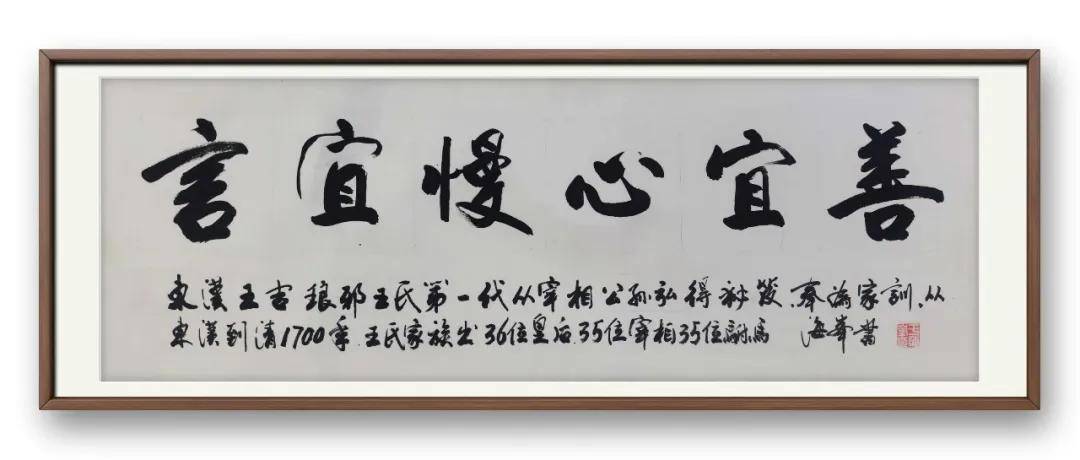 言宜慢心宜善
東漢王吉琅邪王氏第一代从宰相公孙弘得秘笈.奉為家訓.从
東漢到清1700年.王氏家族出36位皇后.35位宰相35位駙馬 海峯書